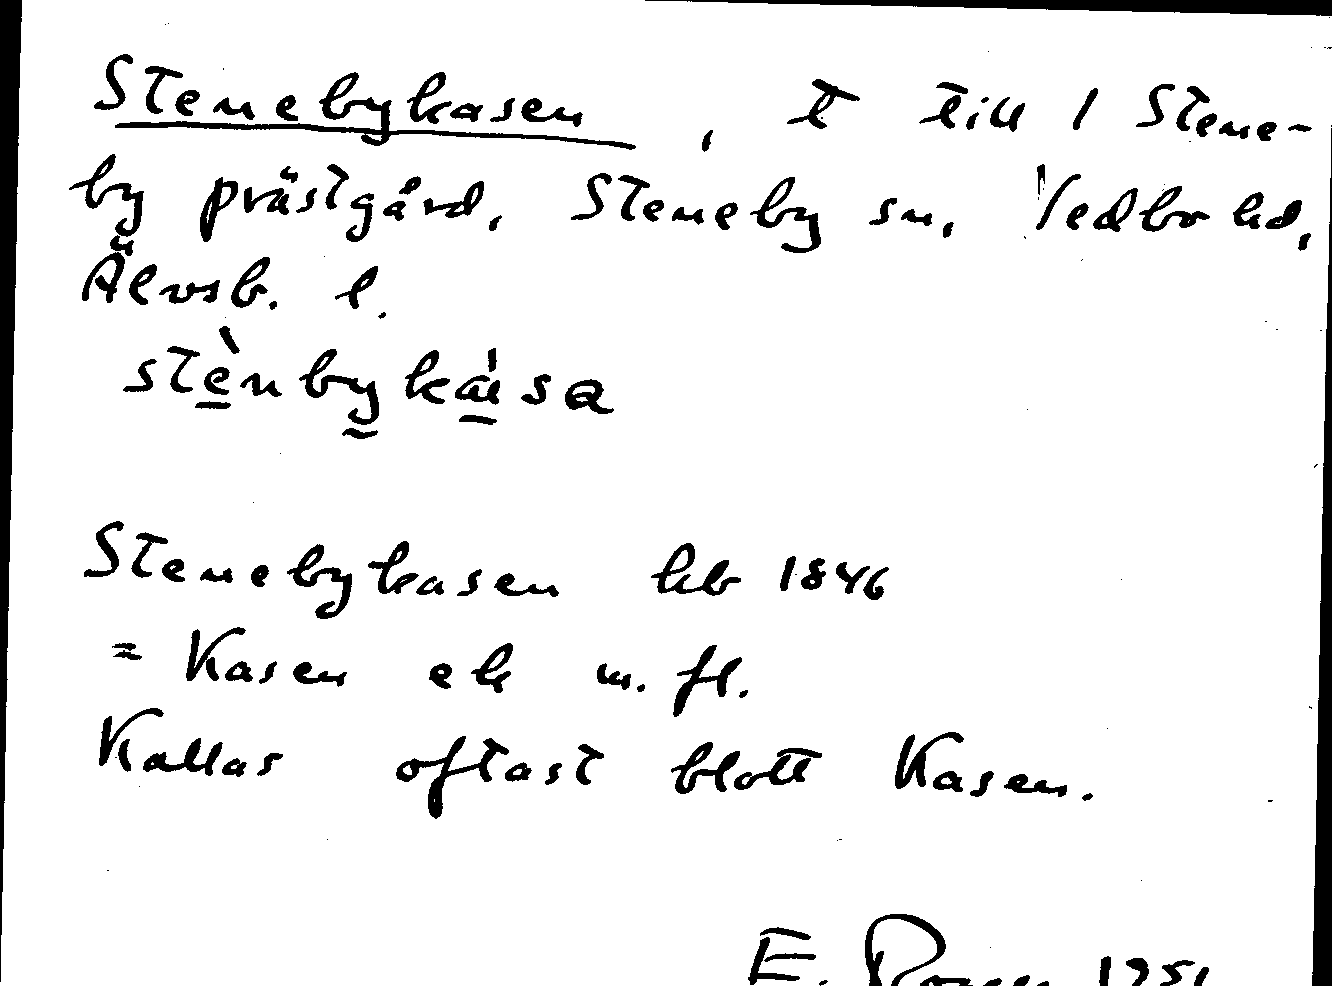 Stenebykasen, t till 1 Stene-
by prästgård, Steneby sn, Vedbo hd,
Älvsb. l.
stènbykása
Stenebykasen hb 1846
= Kasen ek m. fl.
Kallas oftast blott Kasen.
E.